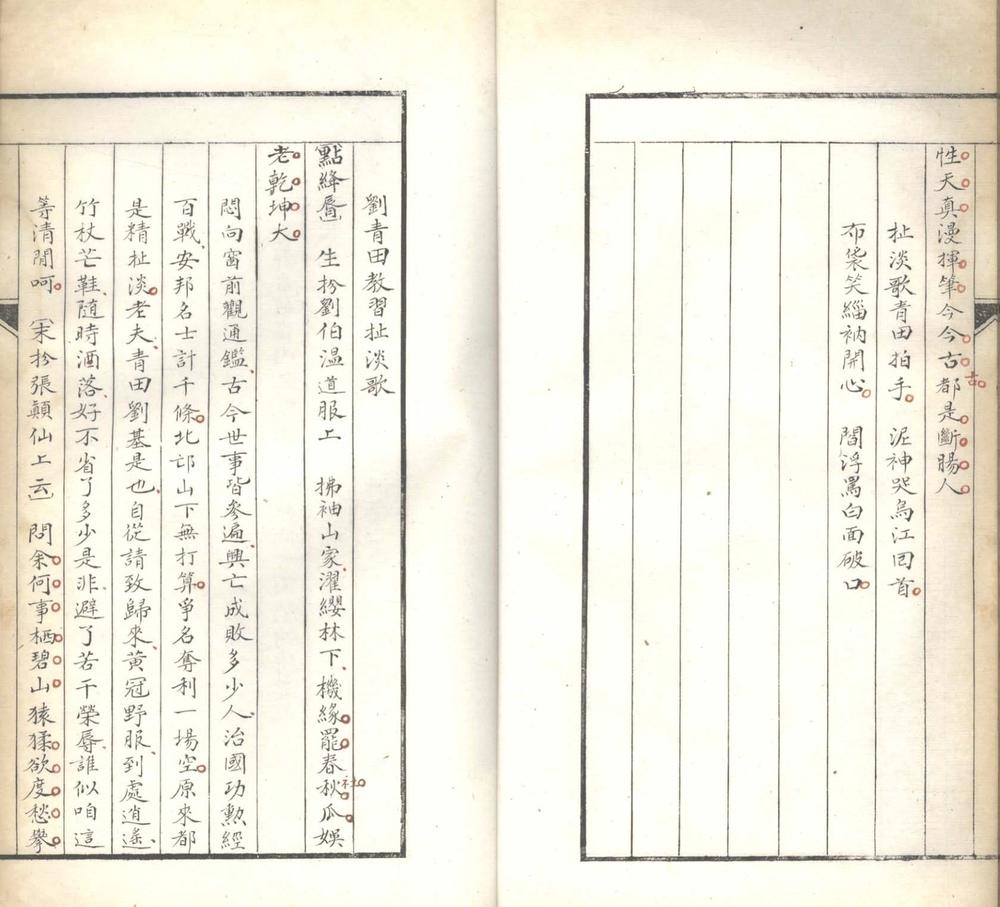 性天真漫揮筆今今古都是斷腸人
古
扯淡歌青田拍手 泥神哭烏江回首
布袋笑緇衲開心 閻浮罵白面破口
劉青田教習扯淡歌
點絳唇 生扮劉伯温道服上 拂袖山家濯纓林下機緣罷春秋瓜娛
社
老乾坤大
悶向窗前觀通鑑古今世事皆參遍興亡成敗多少人治國功勲經
百戰安邦名士計千條北邙山下無打算爭名奪利一場空原來都
是精扯淡老夫青田劉基是也自從請致歸來黃冠野服到處逍遙
竹杖芒鞋隨時洒落好不省了多少是非避了若干榮辱誰似咱這
等清閒呵（末扮張顛仙上云）問余何事栖碧山猿猱欲度愁攀